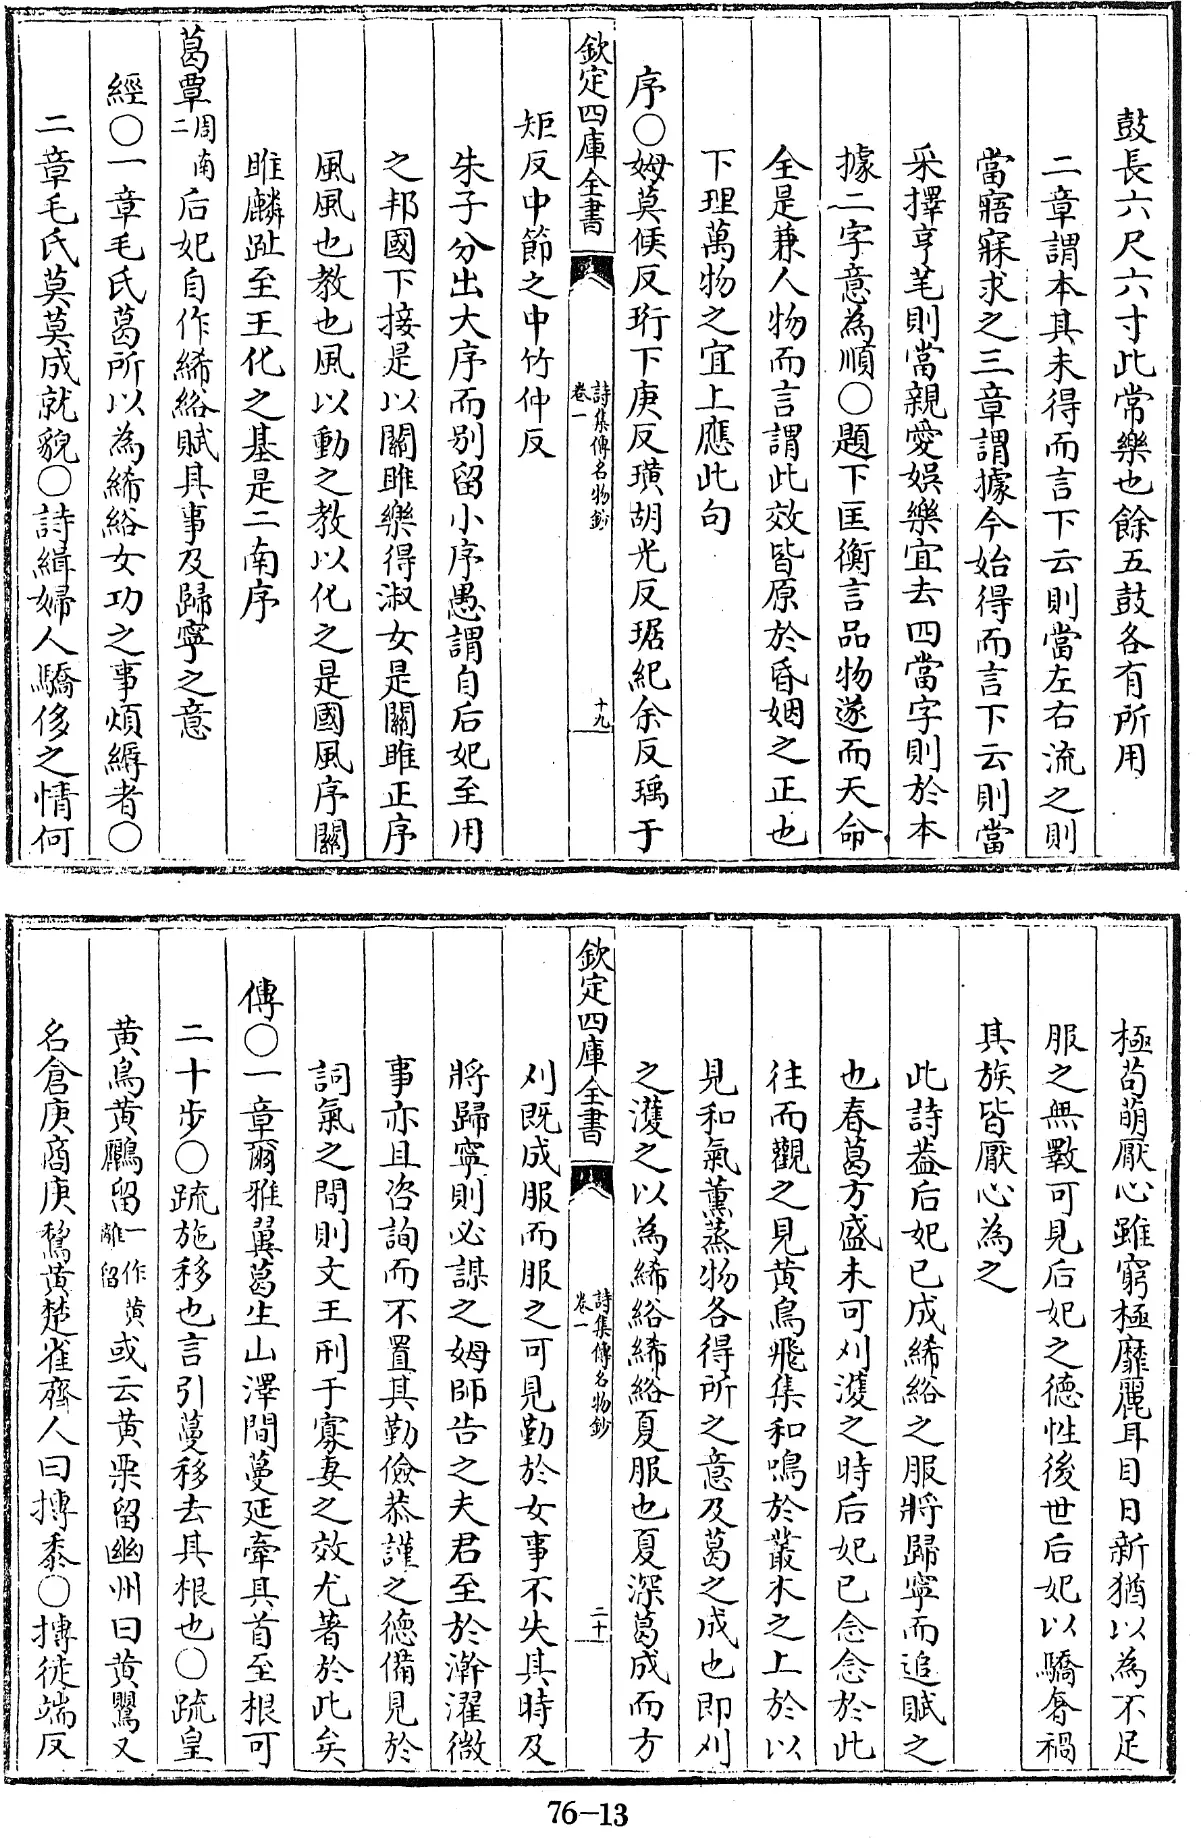 鼓長六尺六寸此常樂也餘五鼓各有所用
二章謂本其未得而言下云則當左右流之則
當寤寐求之三章謂據今始得而言下云則當
采擇亨芼則當親愛娛樂宜去四當字則於本
據二字意為順○題下匡衡言品物遂而天命
全是兼人物而言謂此效皆原於昏姻之正也
下理萬物之宜上應此句
序○姆莫候反珩下庚反璜胡光反琚紀余反瑀于
欽定四庫全書
詩集傳名物鈔
卷一
十九
矩反中節之中竹仲反
朱子分出大序而别留小序愚謂自后妃至用
之邦國下接是以關雎樂得淑女是關雎正序
風風也教也風以動之教以化之是國風序關
雎麟趾至王化之基是二南序
葛覃周南二后妃自作絺綌賦其事及歸寧之意
經○一章毛氏葛所以為絺綌女功之事煩縟者○
二章毛氏莫莫成就貌○詩緝婦人驕侈之情何
極苟萌厭心雖窮極靡麗耳目日新猶以為不足
服之無斁可見后妃之德性後世后妃以驕奢禍
其族皆厭心為之
此詩葢后妃已成絺綌之服將歸寧而追賦之
也春葛方盛未可刈濩之時后妃已念念於此
往而觀之見黄鳥飛集和鳴於叢木之上於以
見和氣薰蒸物各得所之意及葛之成也即刈
之濩之以為絺綌絺綌夏服也夏深葛成而方
欽定四庫全書
詩集傳名物鈔
卷一
二十
刈既成服而服之可見勤於女事不失其時及
將歸寧則必謀之姆師告之夫君至於澣濯微
事亦且咨詢而不置其勤儉恭謹之德備見於
詞氣之間則文王刑于寡妻之效尤著於此矣
傳○一章爾雅翼葛生山澤間蔓延牽其首至根可
二十步○疏施移也言引蔓移去其根也○疏皇
黄鳥黄鸝留一作黄離留或云黄栗留幽州曰黄鸎又
名倉庚商庚鵹黄楚雀齊人曰摶黍○摶徒端反
76-13